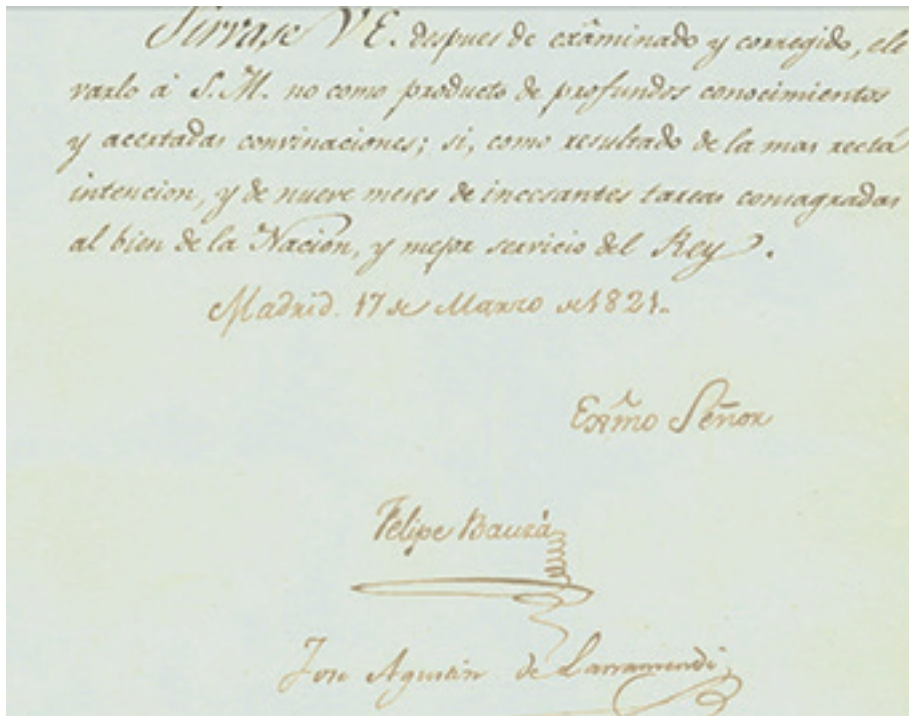 Sirvase V E. despues de exâminado y corregido, ele
varlo à S.M. no como producto de profundos conocimientos
y acertadas convinaciones; si, como resultado de la mas recta
intencion, y de nueve meses de incesantes tareas consagradas
al bien de la Nacion, y mejor servicio del Rey.
Madrid. 17 de Marzo de 1821.
Exmo Señor
Felipe Bauzá
Jose Agustin de Larramendi